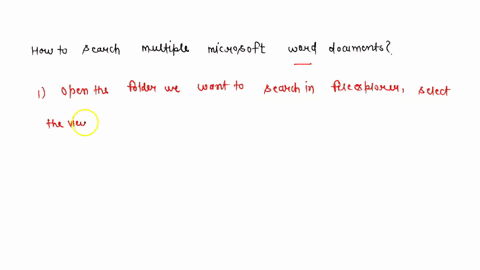 How to search multiple microsoft word documents?
1) Open the folder we want to search in file explorer, select
the view